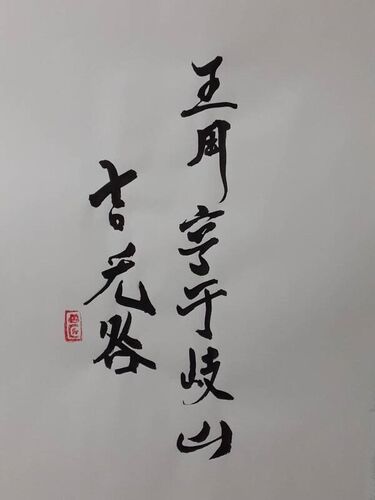 王用亨于岐山
吉无咎